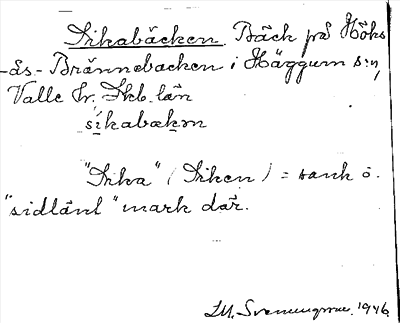 Sikabäcken. Bäck på Höks-
-ås-Brännebacken i Häggum s:n,
Valle hr. Skb. län
sikabækm
"Sika" (Siken) = sank o.
"sidlänt" mark där.
1946.